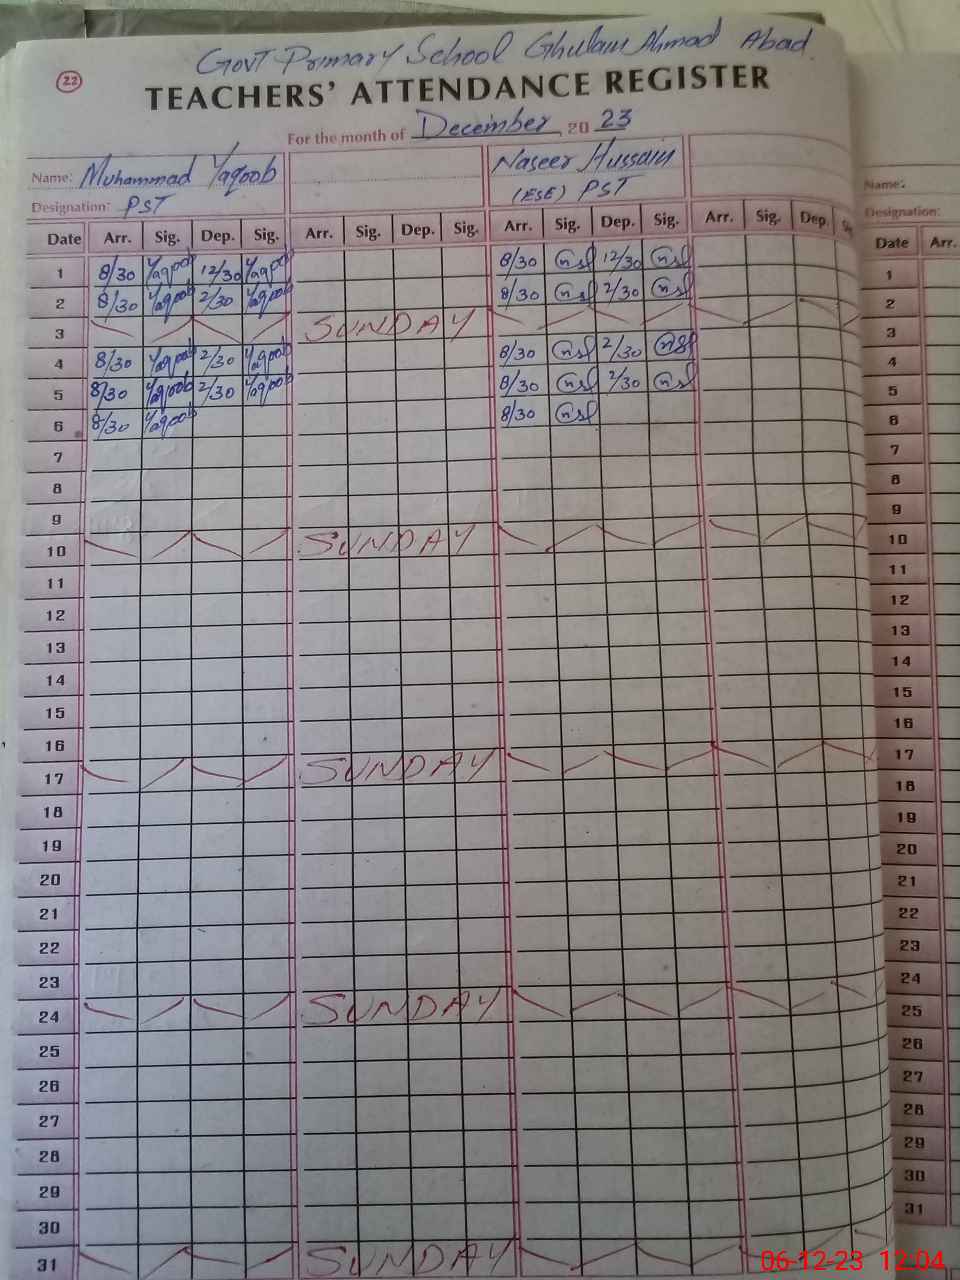 Govt Primary School Ghulam Ahmad Abad
22
TEACHERS' ATTENDANCE REGISTER
For the month of December 2023
Name: Muhammad Yaqoob Naseer Hussain Name:
Designation: PST (ESE) PST Designation:
Date Arr. Sig. Dep. Sig. Arr. Sig. Dep. Sig. Arr. Sig. Dep. Sig. Arr. Sig. Dep. Date Arr.
1 8/30 Yaqoob 12/30 Yaqoob 8/30 12/30 1
2 8/30 Yaqoob 2/30 Yaqoob 8/30 2/30 2
3 SUNDAY 3
4 8/30 Yaqoob 2/30 Yaqoob 8/30 2/30 4
5 8/30 Yaqoob 2/30 Yaqoob 8/30 2/30 5
6 8/30 Yaqoob 8/30 6
7 7
8 8
9 9
10 SUNDAY 10
11 11
12 12
13 13
14 14
15 15
16 16
17 SUNDAY 17
18 18
19 19
20 20
21 21
22 22
23 23
24 SUNDAY 24
25 25
26 26
27 27
28 28
29 29
30 30
31 SUNDAY 31
06-12-23 12:04